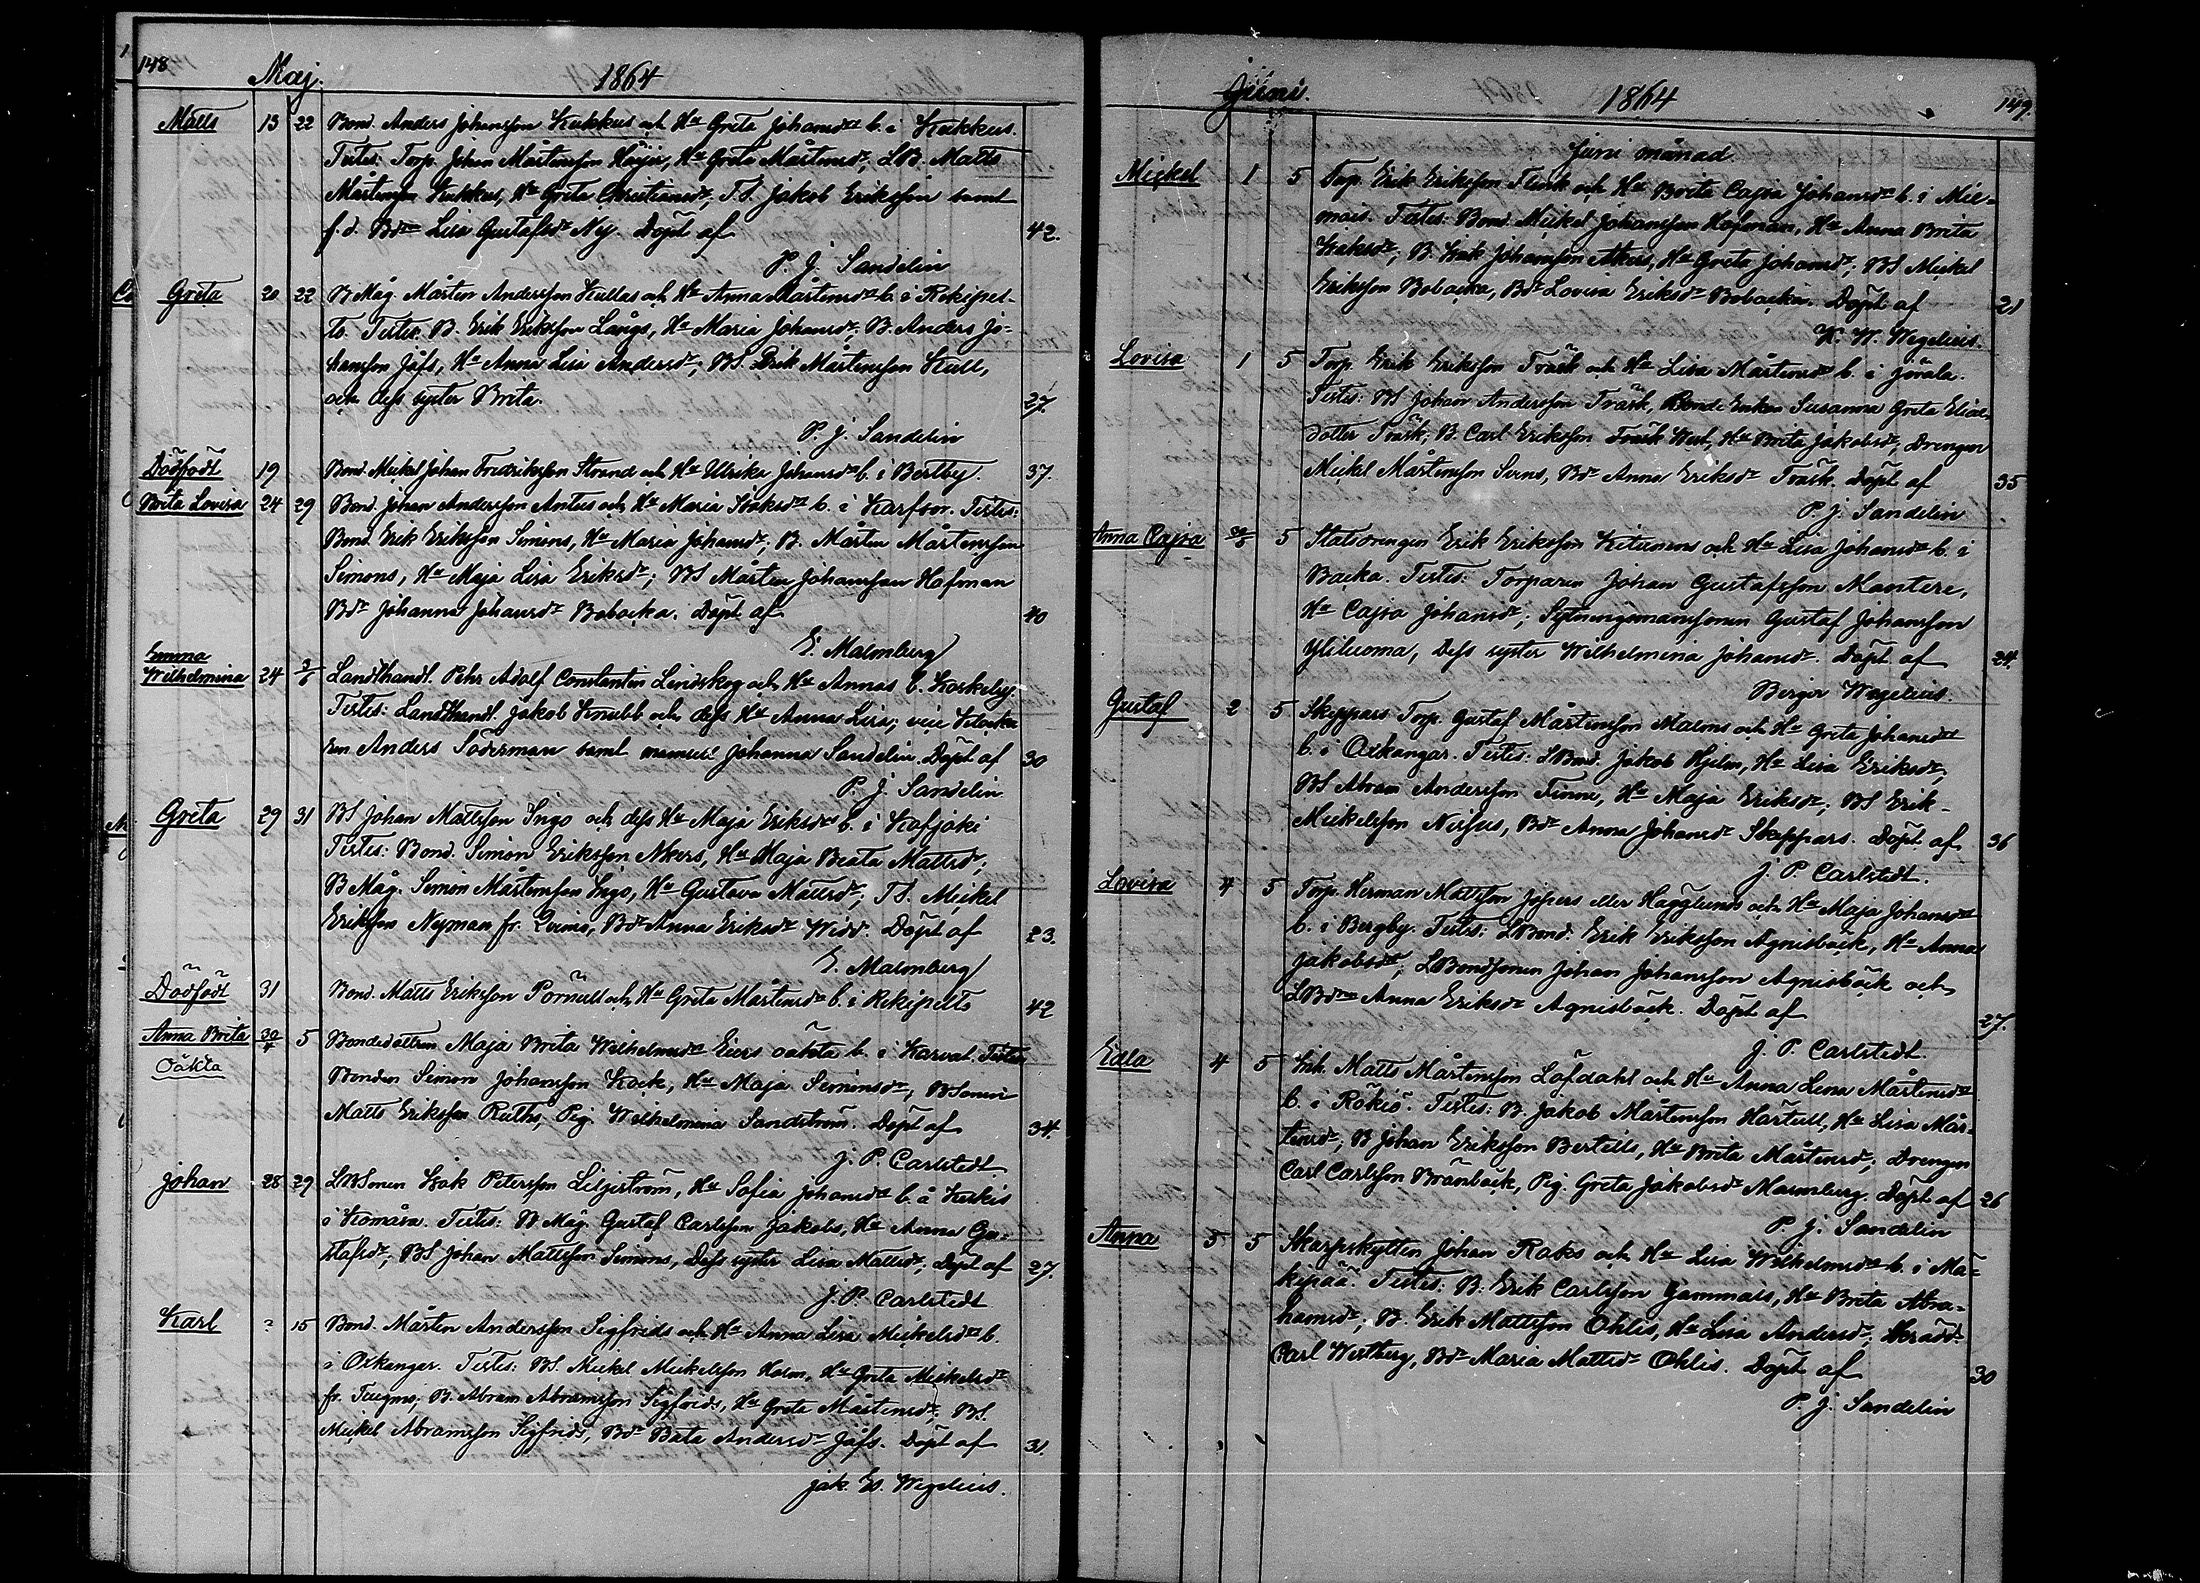 148
Maj.
1864
Matts 13 22 Bond. Anders Johansson Kukkus och Hu Greta Johansdr b. i Kukkus.
Testes: Torp. Johan Mårtensson Höijer, Hu Greta Mårtensdr, LB. Matts
Mårtensson Kukkus, Hu Greta Christiansdr, T.S. Jakob Eriksson samt
f.d. Bdr Lisa Gustafsdr Ny. Döpt af 42.
P. J. Sandelin
Greta 20 22 B Måg. Mårten Andersson Kullas och Hu Anna Mårtensdr b. i Rekipel-
to. Testes: B. Erik Eriksson Långs, Hu Maria Johansdr, B. Anders Jo-
hansson Jåfs, Hu Anna Lisa Andersdr, BS. Erik Mårtensson Kull,
och dess syster Brita. 27.
P. J. Sandelin
Dödfödt 19 Bond. Mickel Johan Fredriksson Strand och Hu Ulrika Johansdr b. i Bertby. 37.
Brita Lovisa 24 29 Bond. Johan Andersson Antus och Hu Maria Isaksdr b. i Karfsor. Testes:
Bond. Erik Eriksson Simons, Hu Maria Johansdr; B. Mårten Mårtensson
Simons, Hu Maja Lisa Eriksdr; BS Mårten Johansson Hofman
Bdr Johanna Johansdr Bobacka. Döpt af 40
E. Malmberg
Emma
Wilhelmina 24 2/6 Landthandl. Pehr Adolf Constantin Lindskog och Hu Annas b. Koskeby.
Testes: Landthandl. Jakob Knubb och dess Hu Anna Lisa;
Anders Söderman samt mamsell Johanna Sandelin. Döpt af 30
P. J. Sandelin
Greta 29 31 BS Johan Mattsson Ingo och dess Hu Maja Eriksdr b. i Kofjoki
Testes: Bond. Simon Eriksson Akers, Hu Maja Beata Mattsdr;
B Måg. Simon Mårtensson Ingo, Hu Gustava Mattsdr; T.S. Mickel
Eriksson Nyman fr. Qvimo, Bdr Anna Eriksdr Widd. Döpt af 23.
E. Malmberg
Dödfödt 31 Bond. Matts Eriksson Pörnull och Hu Greta Mårtensdr b. i Rekipelto 42
Anna Brita 30/4 5 Bondedottren Maja Brita Wilhelmsdr Eiers oäkta b. i Karvat. Testes
Oäkta
Bonden Simon Johansson Kock, Hu Maja Simonsdr, BSonen
Matts Eriksson Ruths, Pig. Wilhelmina Sandström. Döpt af 34.
J. P. Carlstedt
Johan 28 29 LBSonen Isak Petersson Liljeström, Hu Sofia Johansdr b. å Keskis
i Komåsa. Testes: B Måg. Gustaf Carlsson Jakobs, Hu Anna Gu-
stafsdr; BS Johan Mattsson Simons, Dess syster Lisa Mattsdr; Döpt af 27.
J. P. Carlstedt
Karl 2 15 Bond. Mårten Andersson Sigfreds och Hu Anna Lisa Mickelsdr b.
i Oxkangar. Testes: BS. Mickel Mickelsson Holm, Hu Greta Mickelsdr
fr. Teugmo; B. Abram Abramsson Sigfrids, Hu Greta Mårtensdr; BS.
Mickel Abramsson Sigfrids, Bdr Bata Andersdr Jåfs. Döpt af 31.
Jak. Es. Wegelius.
Juni.
1864
149.
Juni månad
Mickel 1 5 Torp. Erik Eriksson Flink och Hu Brita Cajsa Johansdr b. i Mie-
mois. Testes: Bond. Mickel Johansson Hofman, Hu Anna Brita
Isaksdr; B. Isak Johansson Akers, Hu Greta Johansdr; BS Mickel
Eriksson Bobacka, Bdr Lovisa Eriksdr Bobacka. Döpt af 21
K. W. Wegelius.
Lovisa 1 5 Torp. Erik Eriksson Träsk och Hu Lisa Mårtensdr b. i Jörala.
Testes: BS Johan Andersson Träsk, Bonde Enkan Susanna Greta Elias-
dotter Träsk; B. Carl Eriksson Träsk West, Hu Brita Jakobsdr; Drengen
Mickel Mårtensson Svens, Bdr Anna Eriksdr Träsk. Döpt af 35
P. J. Sandelin
Anna Cajsa 30/5 5 Statdrengen Erik Eriksson Kitunens och Hu Lisa Johansdr b. i
Backa. Testes: Torparen Johan Gustafsson Mantere,
Hu Cajsa Johansdr; Sexmansonen Gustaf Johansson
Yliluoma, Dess syster Wilhelmina Johansdr. Döpt af 24.
Berger Wegelius.
Gustaf 2 5 Skeppars Torp. Gustaf Mårtensson Malms och Hu Greta Johansdr
b. i Oxkangar. Testes: LBond. Jakob Hjelm, Hu Lisa Eriksdr,
BS Abram Andersson Finne, Hu Maja Eriksdr; BS Erik
Mickelsson Neihus, Bdr Anna Johansdr Skeppars. Döpt af 36
J. P. Carlstedt.
Lovisa 4 5 Torp. Herman Mattsson Jopers eller Hägglunds och Hu Maja Johansdr
b. i Bergby. Testes: LBond. Erik Eriksson Agnisbäck, Hu Anna
Jakobsdr; LBondsonen Johan Johansson Agnisbäck och
LBdr Anna Eriksdr Agnisbäck. Döpt af 27.
J. P. Carlstedt.
Edla 4 5 Inh. Matts Mårtensson Löfdahl och Hu Anna Lena Mårtensdr
b. i Rökiö. Testes: B. Jakob Mårtensson Härtull, Hu Lisa Mår-
tensdr, B Johan Eriksson Bertills, Hu Brita Mårtensdr; Drengen
Carl Carlsson Brännbäck, Pig. Greta Jakobsdr Malmberg. Döpt af 26
P. J. Sandelin
Anna 5 5 Skarpskytten Johan Raks och Hu Lisa Wilhelmsdr b. i Mä-
kipää. Testes: B. Erik Carlsson Gammals, Hu Brita Abra-
hamsdr; B. Erik Mattsson Ohlis, Hu Lisa Andersdr; Skrädd.
Carl Westberg, Bdr Maria Mattsdr Ohlis. Döpt af 30
P. J. Sandelin